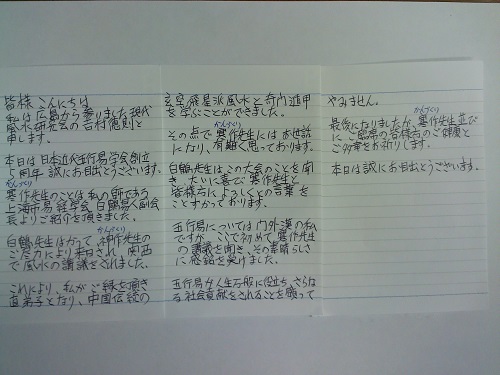 皆様 こんにちは
私は広島から参りました現代
風水研究会の吉村徳則と
申します。
本日は日本近代五行易学会創立
5周年 誠にお目出とうございます。
かんづくり
寒作先生のことは私の師である
上海市易経学会 白鶴易人副会
長よりご紹介を頂きました。
かんづくり
白鶴先生はかつて 寒作先生の
ご尽力により来日され 関西
で風水の講義をされました。
これにより、私がご縁を頂き
直弟子となり、中国伝統の
玄空飛星派風水と奇門遁甲
を学ぶことができました。
かんづくり
その点で 寒作先生には お世話
になり、有難く思っております。
白鶴先生はこの大会のことを聞
き、大いに喜び 寒作先生と
皆様方によろしくとの言葉を
ことずかっております。
五行易については門外漢の私
ですが、ここで初めて 寒作先生
の講義を聞き、その素晴らしさ
に感銘を受けました。
五行易が人生万般に役立ち、さらな
る社会貢献をされることを願って
やみません。
かんづくり
最後になりましたが、寒作先生並び
にご臨席の皆様方のご健康と
ご多幸をお祈りします。
本日は誠にお目出とうございます。